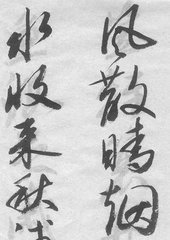 风散晴烟
水收来秋